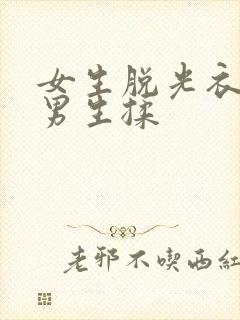 女生脱光衣
男生揉
老邪不喫西紅